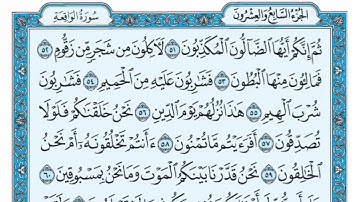 الجزء السابع والعشرون سورة الواقعة
ثُمَّ إِنَّكُمْ أَيُّهَا ٱلضَّآلُّونَ ٱلْمُكَذِّبُونَ ٥١ لَءَاكِلُونَ مِن شَجَرٍ مِّن زَقُّومٍ ٥٢
فَمَالِـُٔونَ مِنْهَا ٱلْبُطُونَ ٥٣ فَشَٰرِبُونَ عَلَيْهِ مِنَ ٱلْحَمِيمِ ٥٤ فَشَٰرِبُونَ
شُرْبَ ٱلْهِيمِ ٥٥ هَٰذَا نُزُلُهُمْ يَوْمَ ٱلدِّينِ ٥٦ نَحْنُ خَلَقْنَٰكُمْ فَلَوْلَا
تُصَدِّقُونَ ٥٧ أَفَرَءَيْتُم مَّا تُمْنُونَ ٥٨ ءَأَنتُمْ تَخْلُقُونَهُۥٓ أَمْ نَحْنُ
ٱلْخَٰلِقُونَ ٥٩ نَحْنُ قَدَّرْنَا بَيْنَكُمُ ٱلْمَوْتَ وَمَا نَحْنُ بِمَسْبُوقِينَ ٦٠